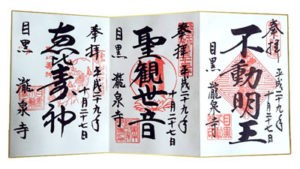 奉拝
平成二十九年
十月二十七日
不動明王
目黒 瀧泉寺
奉拝
平成二十九年
十月二十七日
聖観世音
目黒 瀧泉寺
奉拝
平成二十九年
十月二十七日
恵比寿神
目黒 瀧泉寺